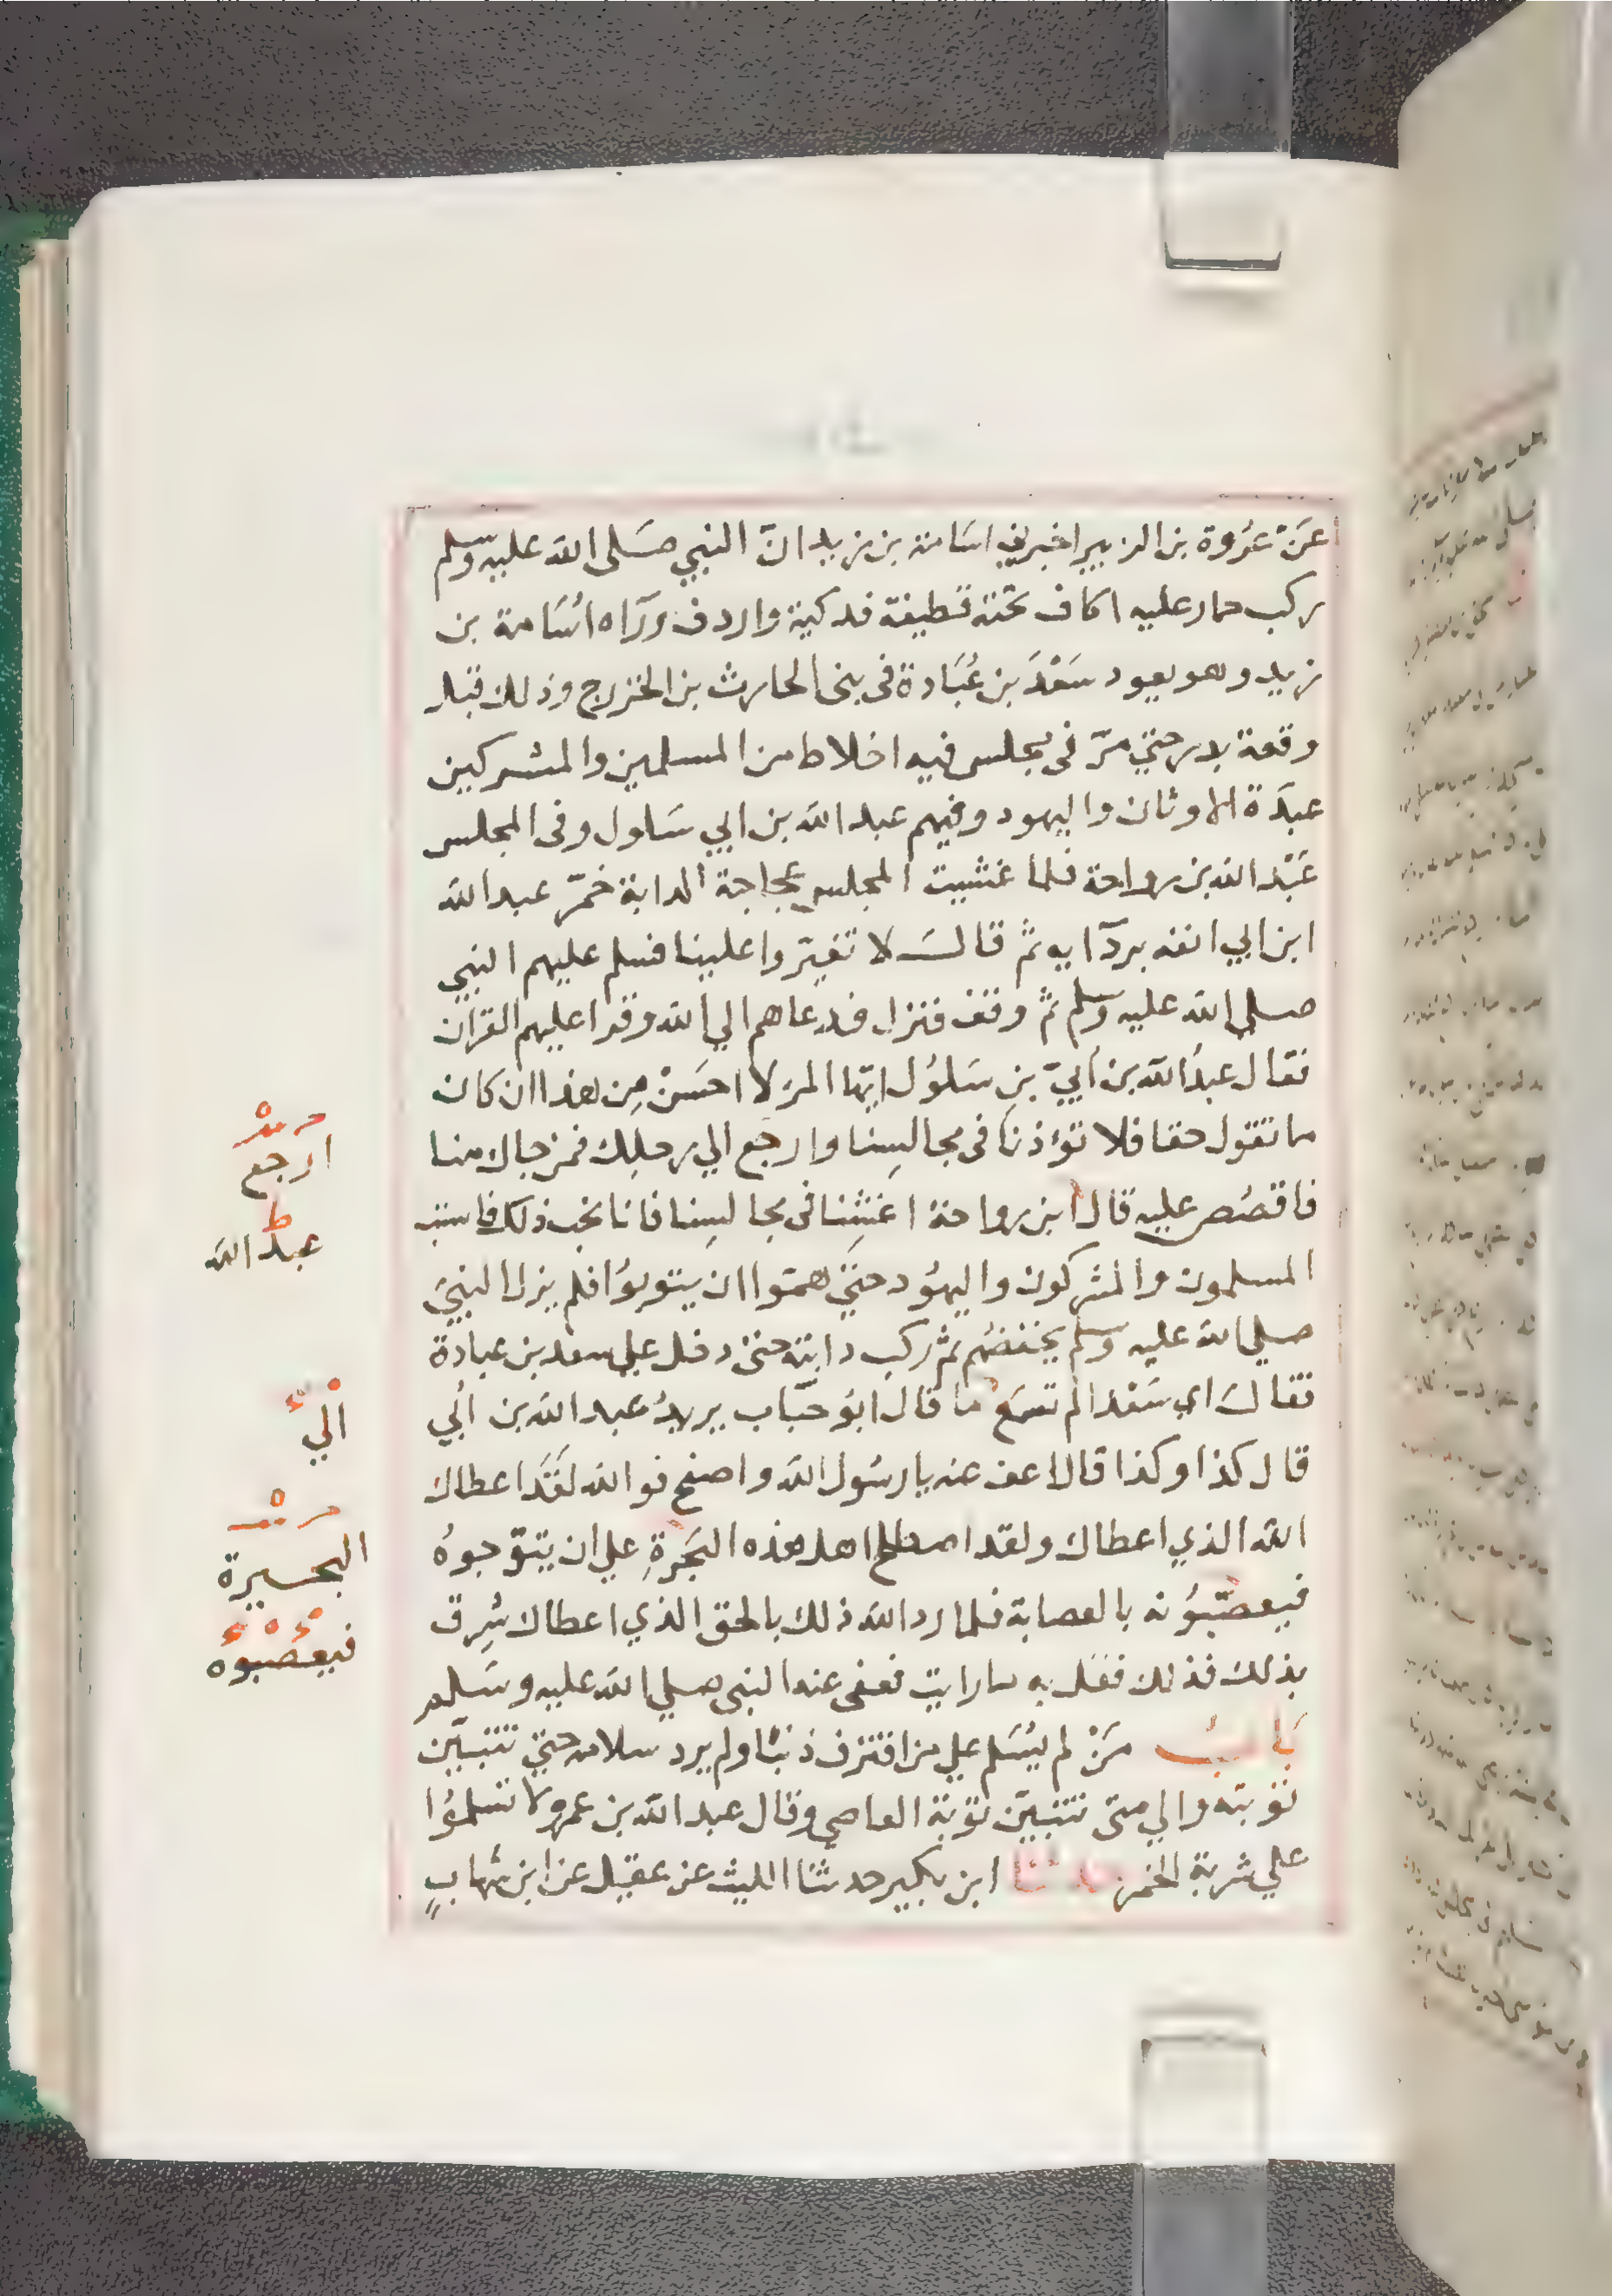 عَنْ عُرْوة بن الزبير اخبرني اسَامة بن زيد انّ النبي صَلى الله عليه وسلم
ركب حمار عليه اكاف تحته قطيفة فدكية واردف ورآاه اُسَامة بن
زيد وهو يعود سَعْدَ بن عُبَادة فى بنى الحارث بن الخزرج وذلك قبل
وقعة بدر حتي مرّ فى مجلس فيه اخلاط من المسلمين والمشركين
عبدَة الاوثان واليهود وفيهم عبد الله بن ابي سَلول وفى المجلس
عَبْد الله بن رواحة فلما غشيت المجلس عجاجة الدابة خمّر عبد الله
ابن ابي انفه بردآيه ثمّ قالَ لا تغبّروا علينا فسلم عليهم النبي
صلي الله عليه وسلم ثمّ وقف فنزل فدعاهم الي الله وقرا عليهم القران
فقال عبدُ الله بن اُبيّ بنِ سَلوُل ايّها المرَ لا احسَنْ مِن هذا ان كان
ما تقول حقا فلا تؤذنا فى مجالسِنا وارجع الي رحلِك فمن جاك منا
فاقصُص عليه قال ابن رواحة اغشِنا فى مجالسِنا فانا نحب ذلك فاستب
المسلمون والمشركون واليهُود حتيّ همّوا ان يتوبوُا فلم يزل النبيَ
صلي الله عليه وسلم يخفضهُم ثمّ ركب دابته حتى دخل علي سعد بن عبادة
فقالَ اي سَعْد الم تسمَعْ ما قال ابوُ حبّاب يريدُ عبد الله بن اُبي
قال كذا وكذا قال اعف عنه يا رسُول الله واصفح فوالله لَقَدَ اعطاك
الله الذي اعطاك ولقد اصطلح اهل هذه البَحْرةِ علي ان يتوّجوهُ
فيعصّبوُنه بالعصابة فلما رد الله ذلك بالحق الذي اعطاك شرِق
بذلك فذلك فعَل به ما رايت فعفى عنه النبى صلي الله عليه وسَلم
بَابُ مَنْ لم يُسَلم علي من اقترف ذنبًا ولم يرد سلامه حتيّ تتبيّن
توبته والي متى تتبيّن توْبة العاصي وقال عبد الله بن عمرو لا تسلموُا
علي شربة الخمر حدثنا ابن بكير حدثنا الليث عن عقيل عن ابن شهابٍ
ارجع
عبد الله
ابي
البحيرة
فيعصبوه